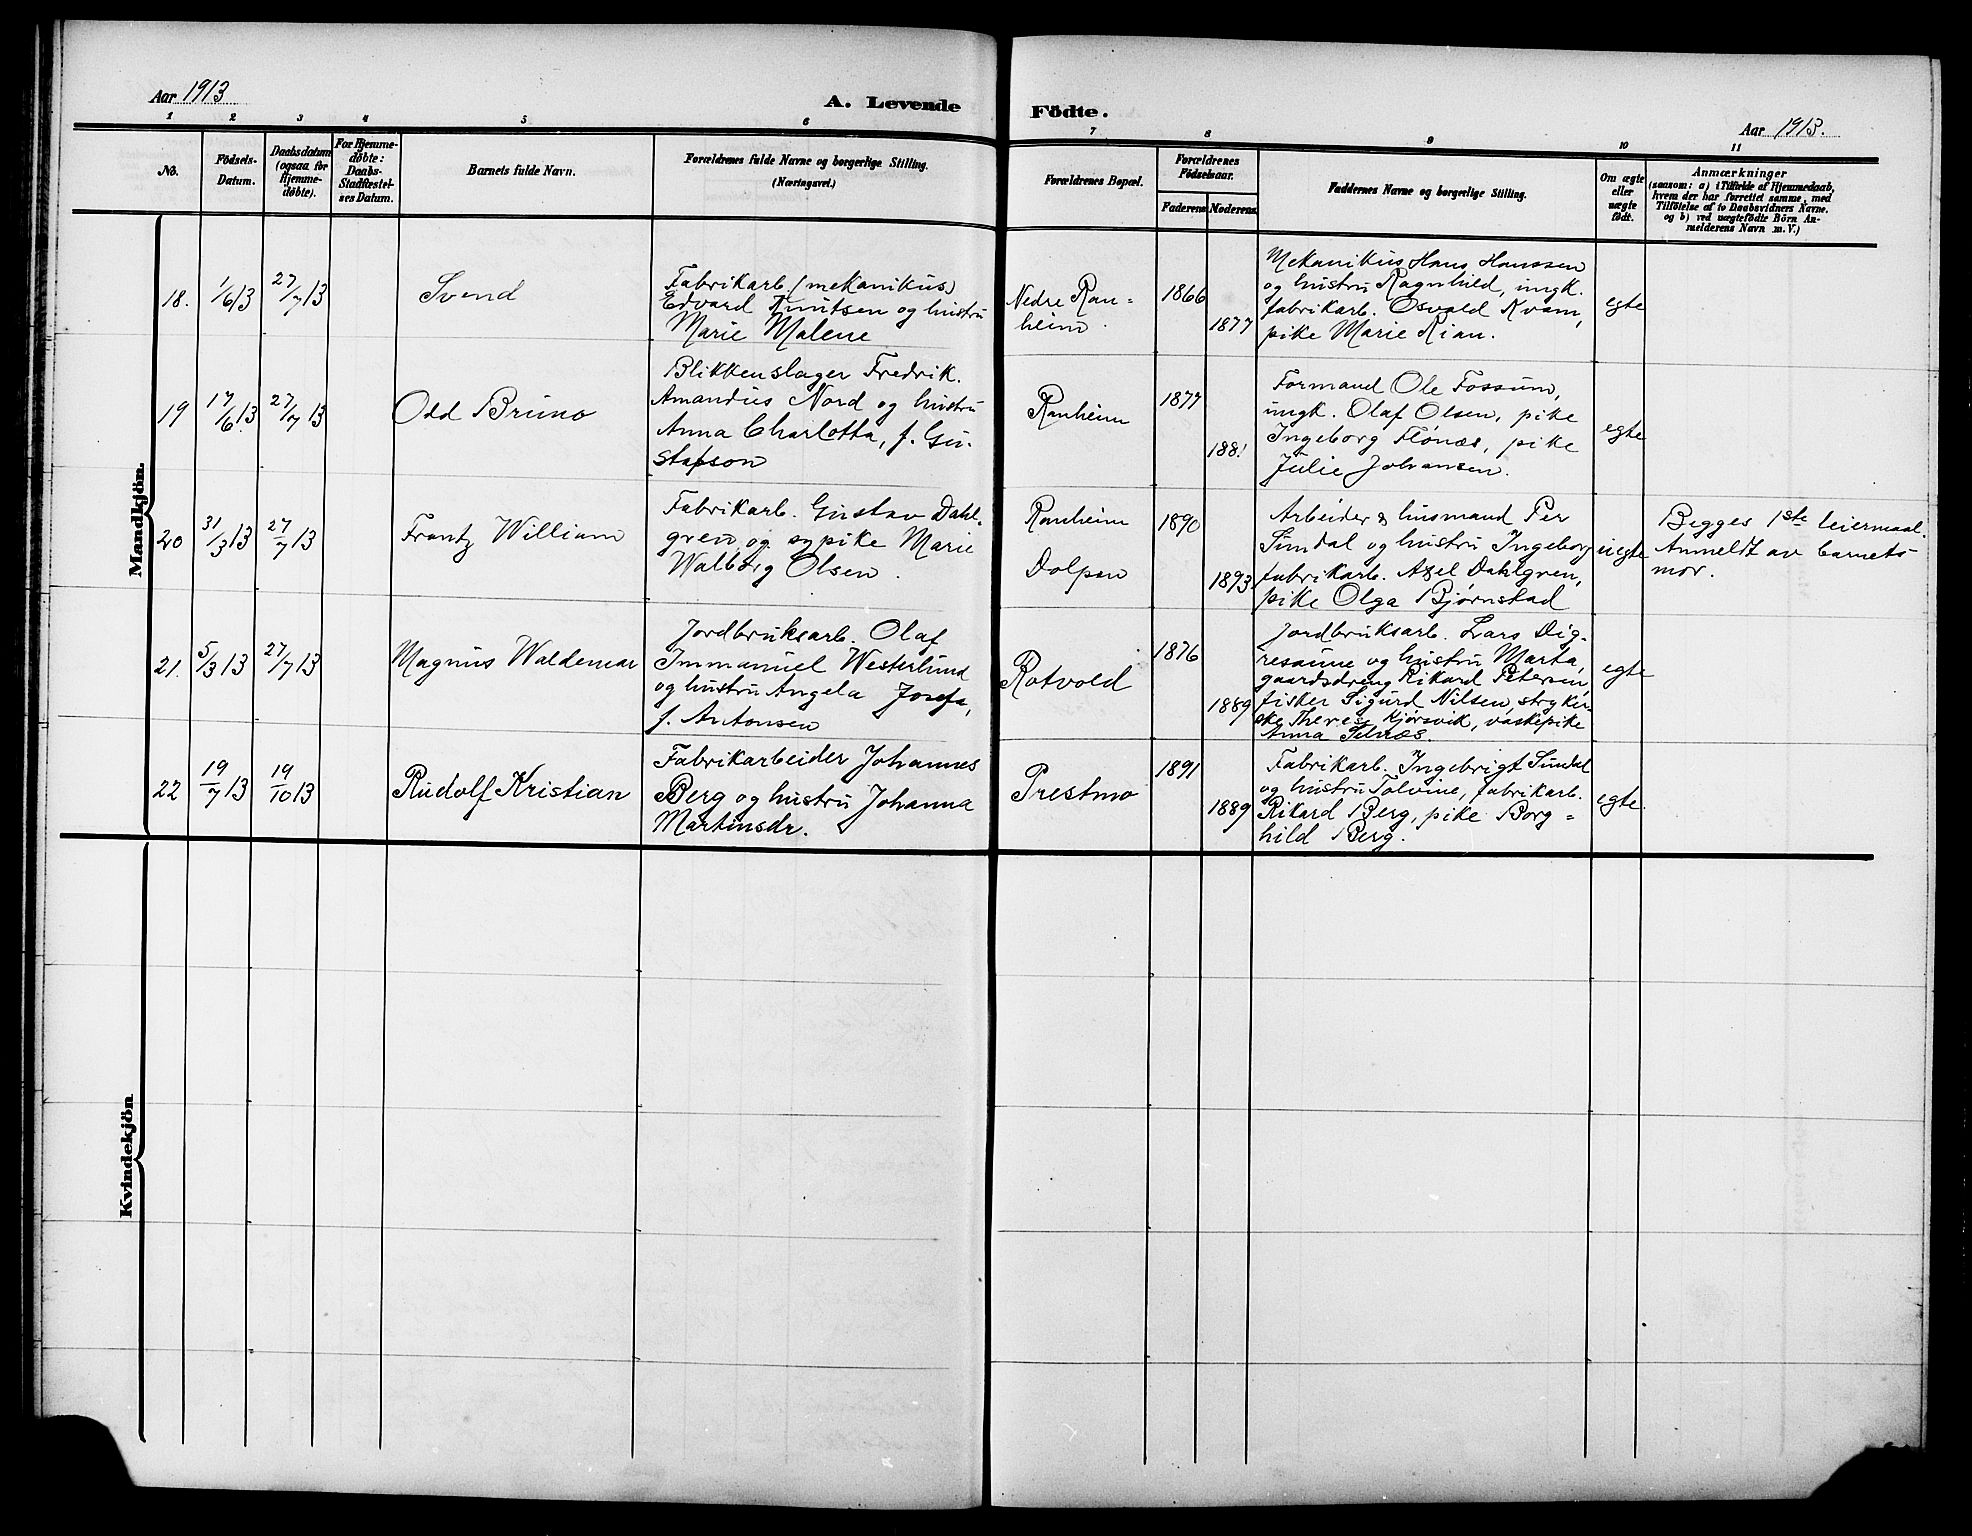 Aar 1913
A. Levende Födte.
Aar 1913.
1 2 3 4 5 6 7 8 9 10 11
No.
Födsels-
Datum.
Daabsdatum
(ogsaa for
Hjemme-
döbte).
For Hjemme-
døbte:
Daabs-
Stadfæstel-
ses Datum.
Barnets fulde Navn.
Forældrenes fulde Navne og borgerlige Stilling.
(Næringsvei.)
Forældrenes Bopæl.
Forældrenes
Födselsaar.
Faderens Moderens
Faddernes Navne og borgerlige Stilling.
Om ægte
eller
uægte
födt.
Anmærkninger
(saasom: a) i Tilfælde af Hjemmedaab,
hvem der har forrettet samme, med
Tilföielse af to Daabsvidners Navne.
og b) ved uægtefödte Börn An-
melderens Navn m. V.)
Mandkjön.
18.
1/6 13
27/7 13
Svend
Fabrikarb. (mekanikus)
Edvard Knutsen og hustru
Marie Malene
Nedre Ran-
heim.
1866
1877
Mekanikus Hans Hanssen
og hustru Ragnhild, ungk.
fabrikarb. Osvald Kvam,
pike Marie Rian.
egte
19
17/6 13
27/7 13
Odd Bruno
Blikkenslager Fredrik
Amandus Nord og hustru
Anna Charlotta, f. Gu-
stafson
Ranheim
1877
1881
Formand Ole Fossum,
ungk. Olaf Olsen, pike
Ingeborg Flønæs, pike
Julie Johansen.
egte
20
31/3 13
27/7 13
Frantz William
Fabrikarb. Gustav Dahl-
gren og sypike Marie
Walborg Olsen.
Ranheim
Dolpen
1890
1893
Arbeider & husmand Per
Sundal og hustru Ingeborg
fabrikarb. Axel Dahlgren,
pike Olga Bjørnstad
uegte
Begges 1ste leiermaal.
Anmeldt av barnets
mor.
21.
5/3 13
27/7 13
Magnus Waldemar
Jordbruksarb. Olaf
Immanuel Westerlund
og hustru Angela Josefa,
f. Antonsen
Rotvold
1876
1889
Jordbruksarb. Lars Dig-
resaune og hustru Marta,
gaardsdreng Rikard Petersen,
fisker Sigurd Nilsen, stryker-
ske Therese Kjørsvik, vaskepike
Anna Selnæs.
egte
22
19/7 13
19/10 13
Rudolf Kristian
Fabrikarbeider Johannes
Berg og hustru Johanna
Martinsdr.
Prestmo
1891
1889
Fabrikarb. Ingebrigt Sundal
og hustru Tolvine, fabrikarb.
Rikard Berg, pike Borg-
hild Berg.
egte.
Kvindekjön